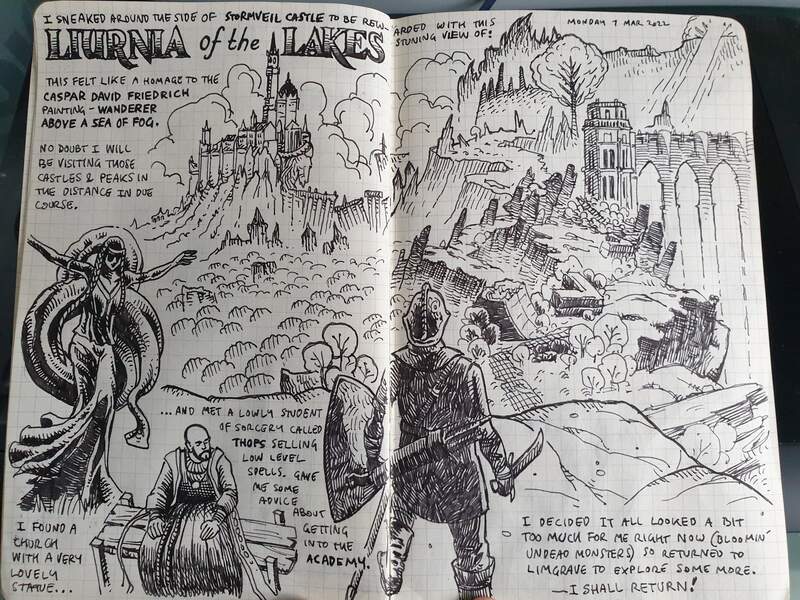 I SNEAKED AROUND THE SIDE OF STORMVEIL CASTLE TO BE REW-
ARDED WITH THIS
STUNING VIEW OF!
MONDAY 7 MAR 2022
LIURNIA of the LAKES
THIS FELT LIKE A HOMAGE TO THE
CASPAR DAVID FRIEDRICH
PAINTING - WANDERER
ABOVE A SEA OF FOG.
NO DOUBT I WILL
BE VISITING THOSE
CASTLES & PEAKS IN
THE DISTANCE IN DUE
COURSE.
I FOUND A
CHURCH
WITH A VERY
LOVELY
STATUE...
...AND MET A LOWLY STUDENT
OF SORCERY CALLED
THOPS SELLING
LOW LEVEL
SPELLS. GAVE
ME SOME
ADVICE
ABOUT
GETTING
INTO THE
ACADEMY.
I DECIDED IT ALL LOOKED A BIT
TOO MUCH FOR ME RIGHT NOW (BLOOMIN'
UNDEAD MONSTERS) SO RETURNED TO
LIMGRAVE TO EXPLORE SOME MORE.
—I SHALL RETURN!